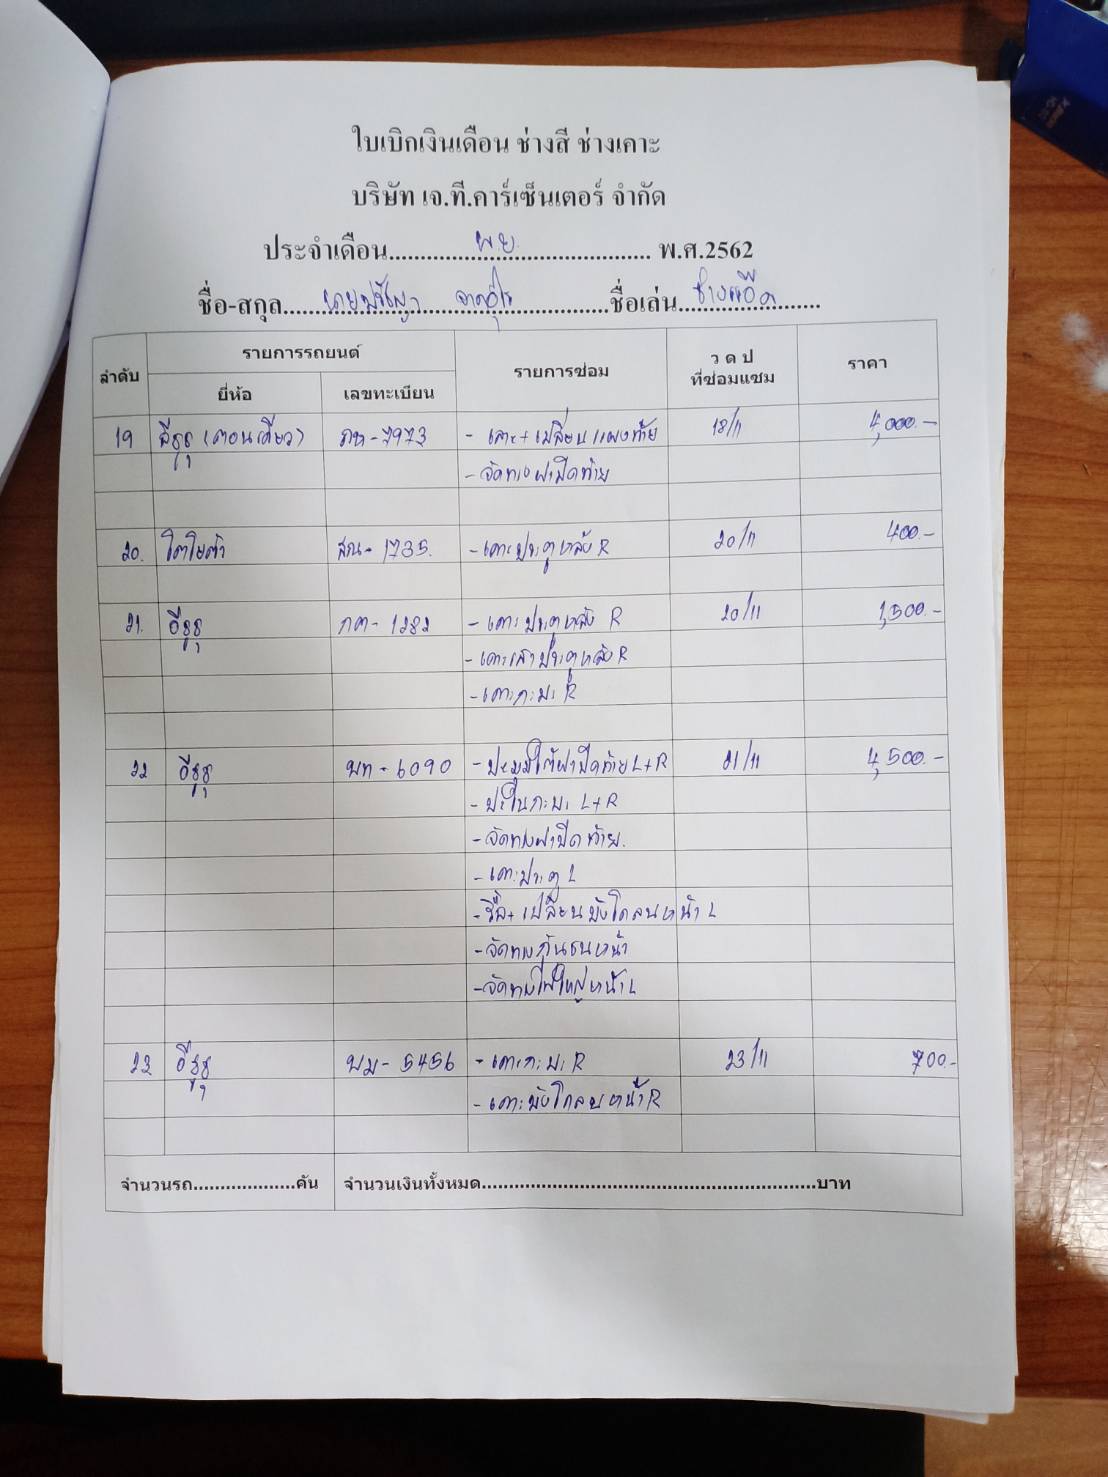 ใบเบิกเงินเดือน ช่างสี ช่างเคาะ
บริษัท เจ.ที.คาร์เซ็นเตอร์ จำกัด
ประจำเดือน พ.ย. พ.ศ.2562
ชื่อ-สกุล ชื่อเล่น ช่างแอ๊ด
รายการรถยนต์
ลำดับ ยี่ห้อ เลขทะเบียน รายการซ่อม ว ด ป ที่ซ่อมแซม ราคา
19 อีซูซุ (ตอนเดียว) - 7973 - เคาะ+เปลี่ยนแผงท้าย 18/11 4,000.-
- จัดทรงฝาปิดท้าย
20. โตโยต้า - 1735. - เคาะประตูหลัง R 20/11 400.-
21. อีซูซุ กต - 1282 - เคาะประตูหลัง R 20/11 1,500.-
- เคาะเสาประตูหลัง R
- เคาะกะบะ R
22 อีซูซุ บท - 6090 - ปะมุมใต้ฝาปิดท้าย L+R 21/11 4,500.-
- ปะในกะบะ L+R
- จัดทรงฝาปิดท้าย.
- เคาะประตู L
- รื้อ+เปลี่ยนบังโคลนหน้า L
- จัดทรงกันชนหน้า
- จัดทรงไฟใหญ่หน้า L
23 อีซูซุ บม - 5456 - เคาะกะบะ R 23/11 700.-
- เคาะบังโคลนหน้า R
จำนวนรถ....................คัน จำนวนเงินทั้งหมด............................................................บาท